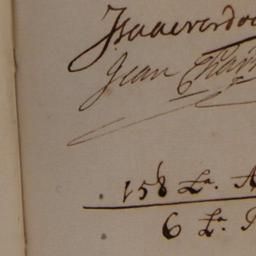 Isaac verdo
Jean Char
158 Lr. A
6 Lr. P